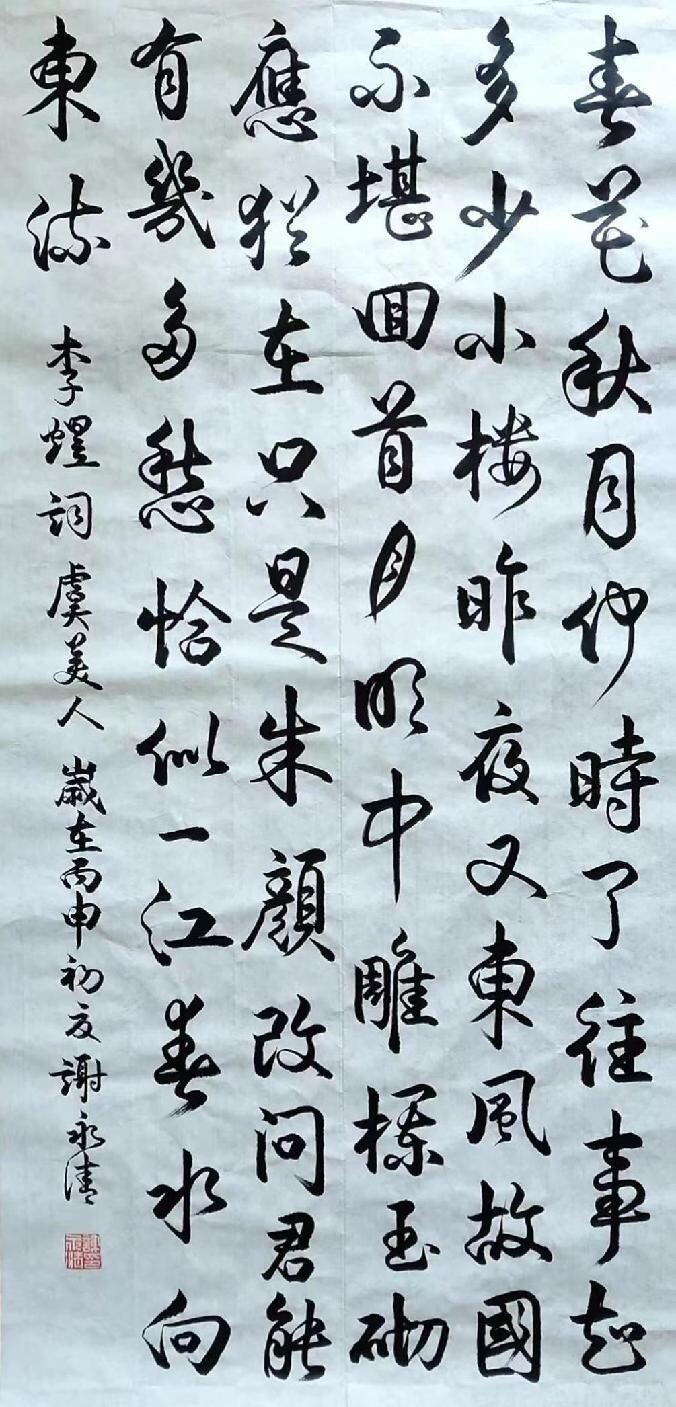 春花秋月何時了往事知
多少小樓昨夜又東風故國
不堪回首月明中雕欄玉砌
應猶在只是朱顔改問君能
有幾多愁恰似一江春水向
東流 李煜詞虞美人 歲在丙申初夏謝永清